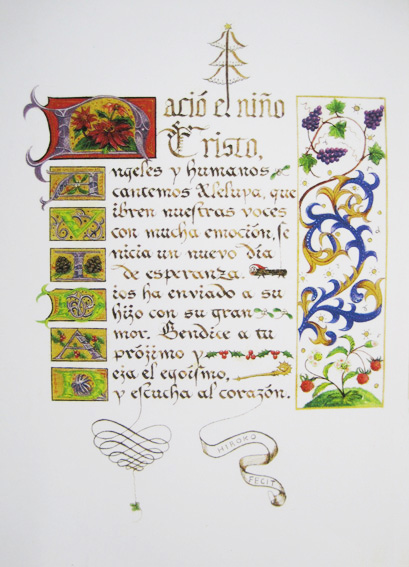 Nació el niño
Cristo,
Angeles y humanos
cantemos Aleluya, que
Vibren nuestras voces
con mucha emoción, se
Inicia un nuevo día
de esperanza.
Dios ha enviado a su
hijo con su gran
Amor. Bendice a tu
prójimo y
Deja el egoísmo,
y escucha al corazón.
HIROKO
FECIT